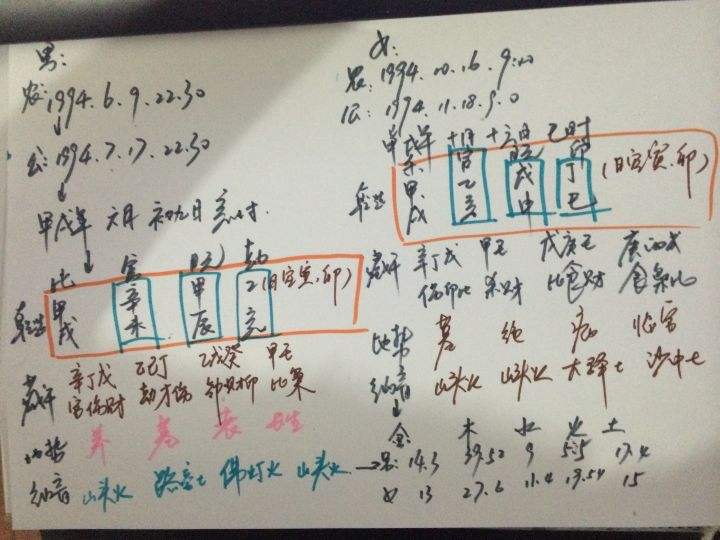 男:
农:1994.6.9.22.30
公:1994.7.17.22.30
甲戌年 六月 初九日 亥时
比 官 元 劫
乾造 甲戌 辛未 甲辰 乙亥 (日空寅.卯)
藏干 辛丁戊 乙己丁 乙戊癸 甲壬
官伤财 劫才伤 劫财印 比枭
地势 养 墓 衰
纳音 山头火 路旁土 佛灯火 山头火
女:
农:1994.10.16.9:00
公:1994.11.18.9.0
甲戌年 十月 十六日 巳时
杀 官 元 印
甲戌 乙亥 戊申 丁巳 (日空寅.卯)
藏干 辛丁戊 甲壬 戊庚壬 庚丙戊
伤印比 杀财 比食财 食枭比
地势 墓 绝 病 临官
纳音 山头火 山头火 大驿土 沙中土
金 木 水 火 土
男:14.3 39.52 9 17.4
女 13 27.6 11.4 19.54 15